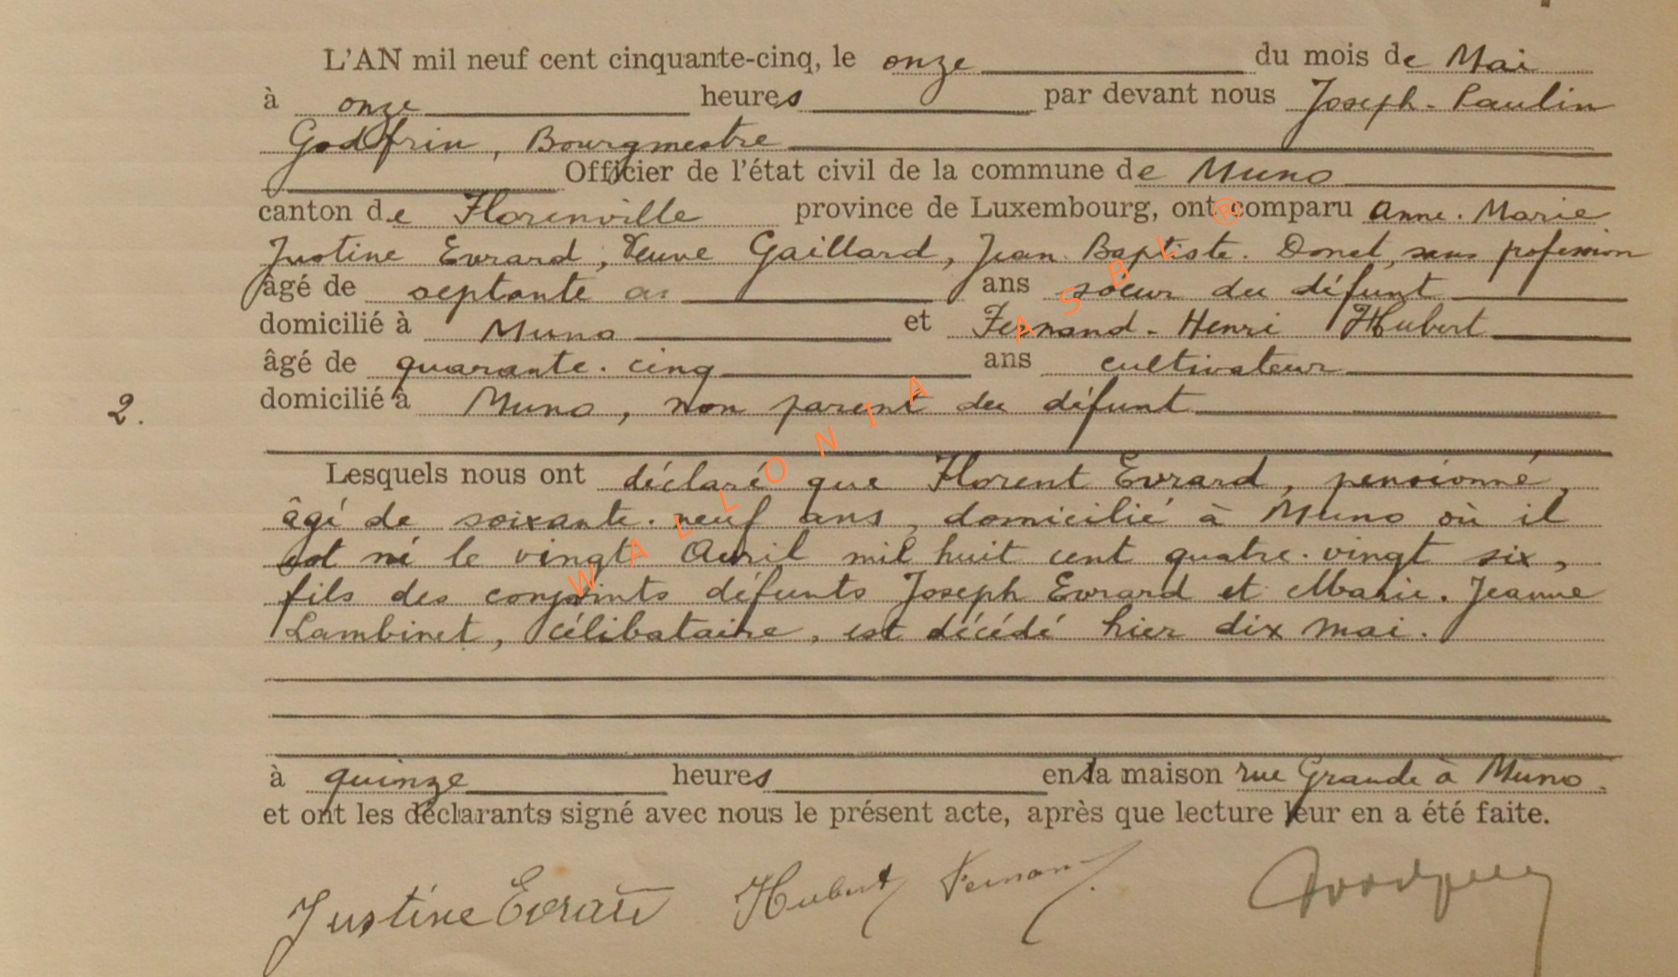 L'AN mil neuf cent cinquante-cinq, le onze du mois de Mai
à onze heures par devant nous Joseph-Paulin
Godfrin, Bourgmestre
Officier de l'état civil de la commune de Muno
canton de Florenville province de Luxembourg, ont comparu Anne-Marie
Justine Evrard, Veuve Gaillard, Jean Baptiste-Donat, sans profession
âgé de septante ans soeur du défunt
domicilié à Muno et Fernand-Henri Hubert
âgé de quarante-cinq ans cultivateur
domicilié à Muno, non parent du défunt
2.
Lesquels nous ont déclaré que Florent Evrard, pensionné,
âgé de soixante-neuf ans, domicilié à Muno où il
est né le vingt Avril mil huit cent quatre-vingt six,
fils des conjoints défunts Joseph Evrard et Marie-Jeanne
Lambinet, célibataire, est décédé hier dix mai.
à quinze heures en la maison rue Grande à Muno.
et ont les déclarants signé avec nous le présent acte, après que lecture leur en a été faite.
Justine Evrard Hubert Fernand
WALLONIA ASBL ®